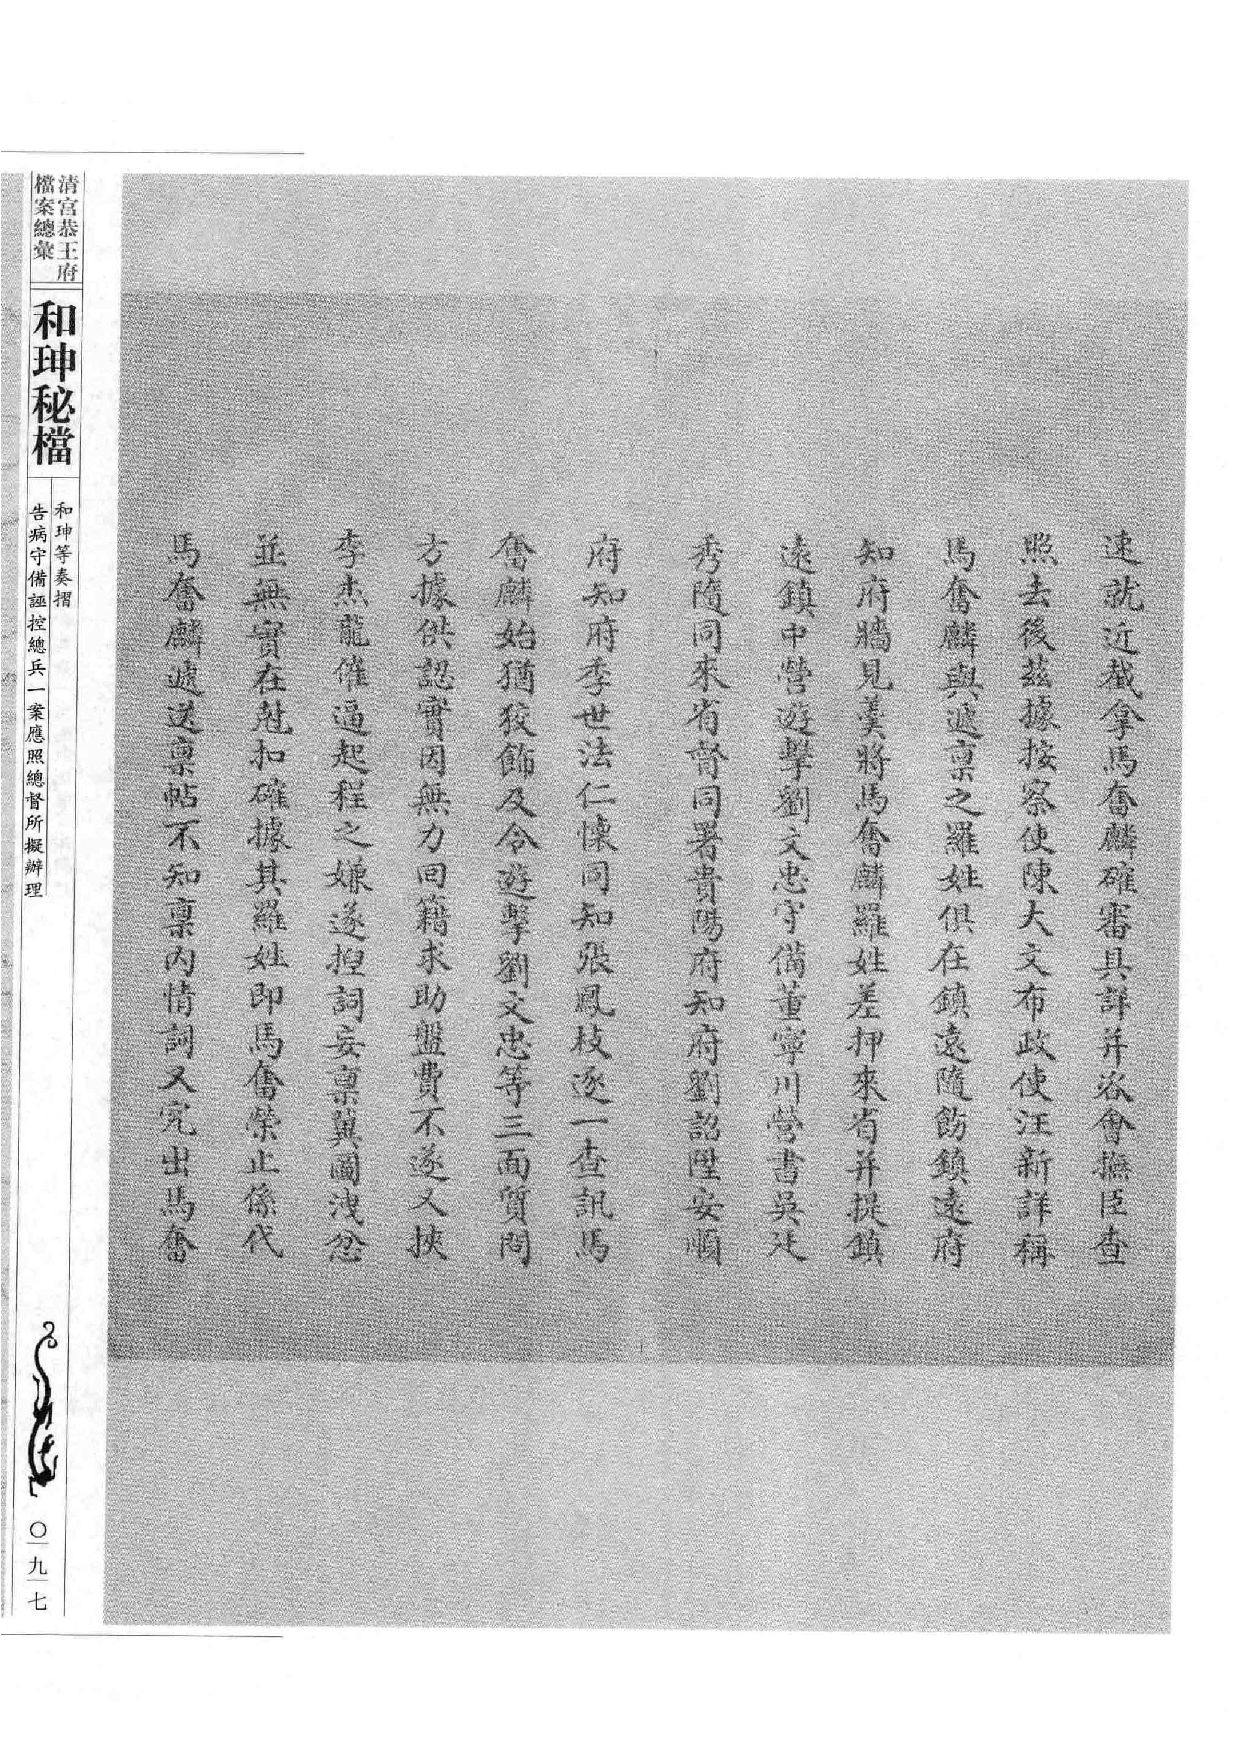 速就近截拿馬奮麟確審具詳并咨會撫臣查
照去後茲據按察使陳大文布政使汪新詳稱
馬奮麟與遞稟之羅姓俱在鎮遠隨飭鎮遠府
知府牆見羹將馬奮麟羅姓差押來省并提鎮
遠鎮中營遊擊劉文忠守備董寧川營書吳廷
秀隨同來省督同署貴陽府知府劉詔陞安順
府知府季世法仁懷同知張鳳枝逐一查訊馬
奮麟始猶狡飾及令遊擊劉文忠等三面質問
方據供認實因無力回籍求助盤費不遂又挾
李杰龍催逼起程之嫌遂揑詞妄稟冀圖洩忿
並無實在尅扣確據其羅姓即馬奮榮止係代
馬奮麟遞送稟帖不知稟內情詞又究出馬奮
清宮恭王府
檔案總彙
和珅秘檔
和珅等奏摺
告病守備誣控總兵一案應照總督所擬辦理
〇九七